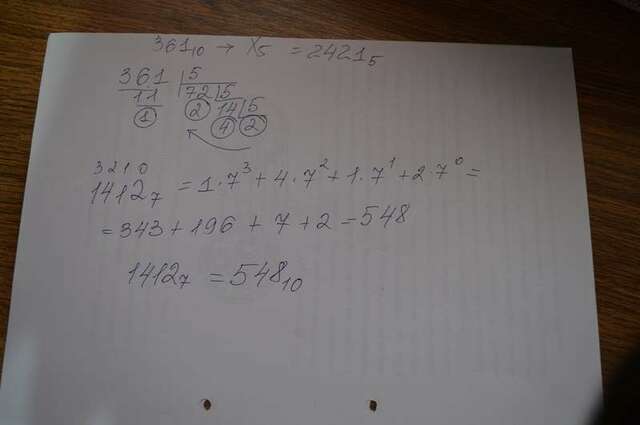 361₁₀ → X₅ = 2421₅
361 | 5
11 72 | 5
1 2 14 | 5
4 2
3 2 1 0
1412₇ = 1·7³ + 4·7² + 1·7¹ + 2·7⁰ =
= 343 + 196 + 7 + 2 = 548
1412₇ = 548₁₀